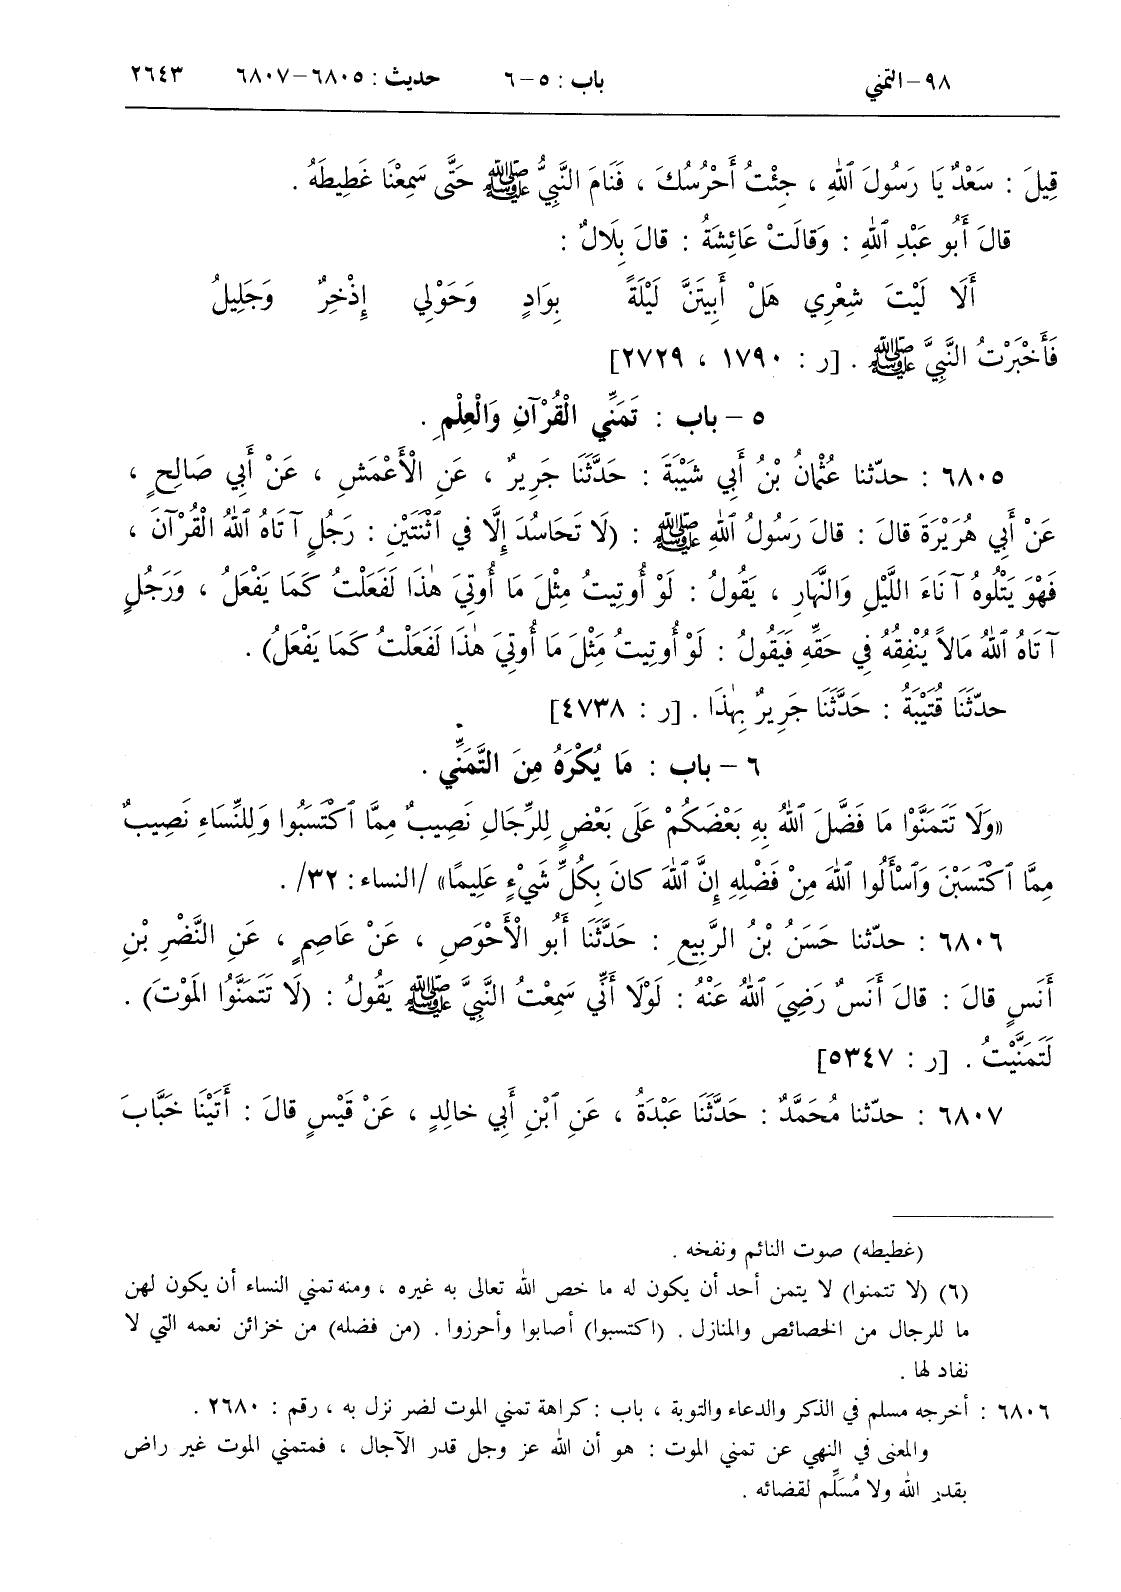 ٩٨ – التمني باب : ٥ – ٦ حديث : ٦٨٠٥ – ٦٨٠٧ ٢٦٤٣
قِيلَ : سَعْدٌ يَا رَسُولَ ٱللهِ ، جِئْتُ أَحْرُسُكَ ، فَنَامَ النَّبِيُّ ﷺ حَتَّى سَمِعْنَا غَطِيطَهُ .
قالَ أَبُو عَبْدِ ٱللهِ : وَقالَتْ عَائِشَةُ : قالَ بِلَالٌ :
أَلَا لَيْتَ شِعْرِي هَلْ أَبِيتَنَّ لَيْلَةً بِوَادٍ وَحَوْلِي إِذْخِرٌ وَجَلِيلُ
فَأَخْبَرْتُ النَّبِيَّ ﷺ . [ر : ١٧٩٠ ، ٢٧٢٩]
٥ – باب : تَمَنِّي الْقُرْآنِ وَالْعِلْمِ .
٦٨٠٥ : حدّثنا عُثْمانُ بْنُ أَبِي شَيْبَةَ : حَدَّثَنَا جَرِيرٌ ، عَنِ الْأَعْمَشِ ، عَنْ أَبِي صَالِحٍ ،
عَنْ أَبِي هُرَيْرَةَ قالَ : قالَ رَسُولُ ٱللهِ ﷺ : (لَا تَحَاسُدَ إِلَّا في ٱثْنَتَيْنِ : رَجُلٍ آتَاهُ ٱللهُ الْقُرْآنَ ،
فَهْوَ يَتْلُوهُ آنَاءَ اللَّيْلِ وَالنَّهَارِ ، يَقُولُ : لَوْ أُوتِيتُ مِثْلَ مَا أُوتِيَ هٰذَا لَفَعَلْتُ كَمَا يَفْعَلُ ، وَرَجُلٍ
آتَاهُ ٱللهُ مَالاً يُنْفِقُهُ فِي حَقِّهِ فَيَقُولُ : لَوْ أُوتِيتُ مِثْلَ مَا أُوتِيَ هٰذَا لَفَعَلْتُ كَمَا يَفْعَلُ) .
حدّثَنَا قُتَيْبَةُ : حَدَّثَنَا جَرِيرٌ بِهٰذَا . [ر : ٤٧٣٨]
٦ – باب : مَا يُكْرَهُ مِنَ التَّمَنِّي .
«وَلَا تَتَمَنَّوْا مَا فَضَّلَ ٱللهُ بِهِ بَعْضَكُمْ عَلَى بَعْضٍ لِلرِّجَالِ نَصِيبٌ مِمَّا ٱكْتَسَبُوا وَلِلنِّسَاءِ نَصِيبٌ
مِمَّا ٱكْتَسَبْنَ وَٱسْأَلُوا ٱللهَ مِنْ فَضْلِهِ إِنَّ ٱللهَ كانَ بِكُلِّ شَيْءٍ عَلِيمًا» /النساء : ٣٢/ .
٦٨٠٦ : حدّثنا حَسَنُ بْنُ الرَّبِيعِ : حَدَّثَنَا أَبُو الْأَحْوَصِ ، عَنْ عَاصِمٍ ، عَنِ النَّضْرِ بْنِ
أَنَسٍ قالَ : قالَ أَنَسٌ رَضِيَ ٱللهُ عَنْهُ : لَوْلَا أَنِّي سَمِعْتُ النَّبِيَّ ﷺ يَقُولُ : (لَا تَتَمَنَّوُا المَوْتَ) .
لَتَمَنَّيْتُ . [ر : ٥٣٤٧]
٦٨٠٧ : حدّثنا مُحَمَّدٌ : حَدَّثَنَا عَبْدَةُ ، عَنِ ٱبْنِ أَبِي خالِدٍ ، عَنْ قَيْسٍ قالَ : أَتَيْنَا خَبَّابَ
(غطيطه) صوت النائم ونفخه .
(٦) (لا تتمنوا) لا يتمن أحد أن يكون له ما خص الله تعالى به غيره ، ومنه تمني النساء أن يكون لهن
ما للرجال من الخصائص والمنازل . (اكتسبوا) أصابوا وأحرزوا . (من فضله) من خزائن نعمه التي لا
نفاد لها .
٦٨٠٦ : أخرجه مسلم في الذكر والدعاء والتوبة ، باب : كراهة تمني الموت لضر نزل به ، رقم : ٢٦٨٠ .
والمعنى في النهي عن تمني الموت : هو أن الله عز وجل قدر الآجال ، فمتمني الموت غير راض
بقدر الله ولا مُسَلِّم لقضائه .